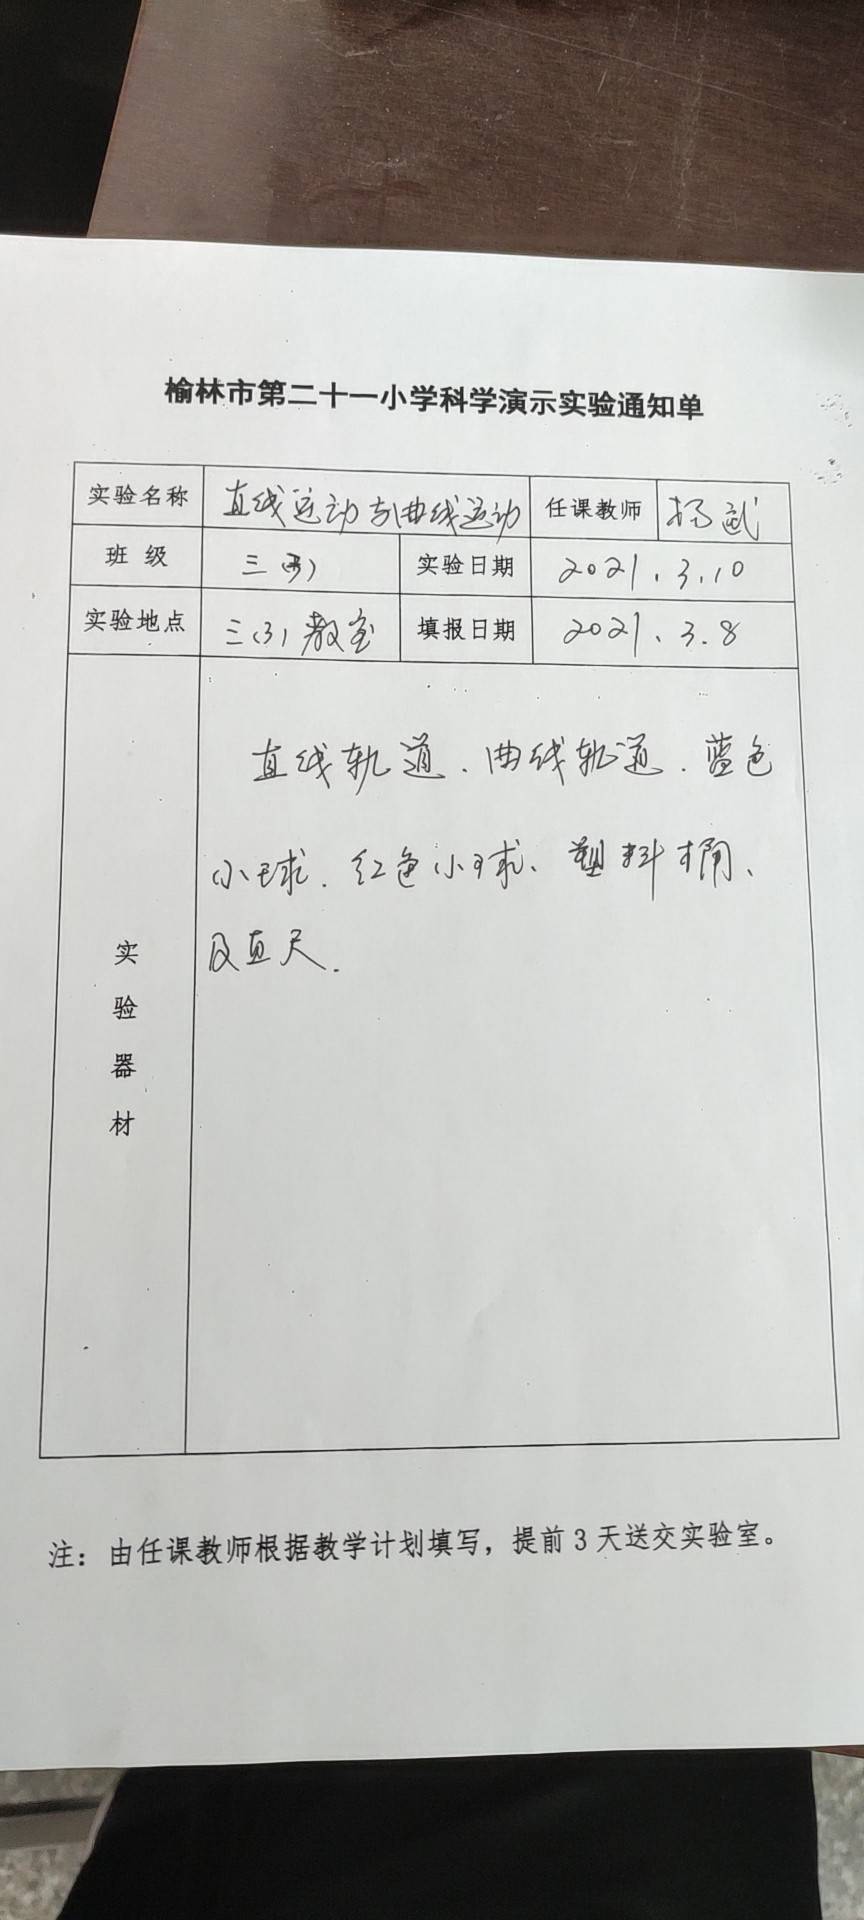 榆林市第二十一小学科学演示实验通知单
实验名称 直线运动与曲线运动 任课教师 杨武
班 级 三(3) 实验日期 2021.3.10
实验地点 三(3)教室 填报日期 2021.3.8
实验器材
直线轨道、曲线轨道、蓝色
小球、红色小球、塑料桶、
及直尺.
注：由任课教师根据教学计划填写，提前3天送交实验室。